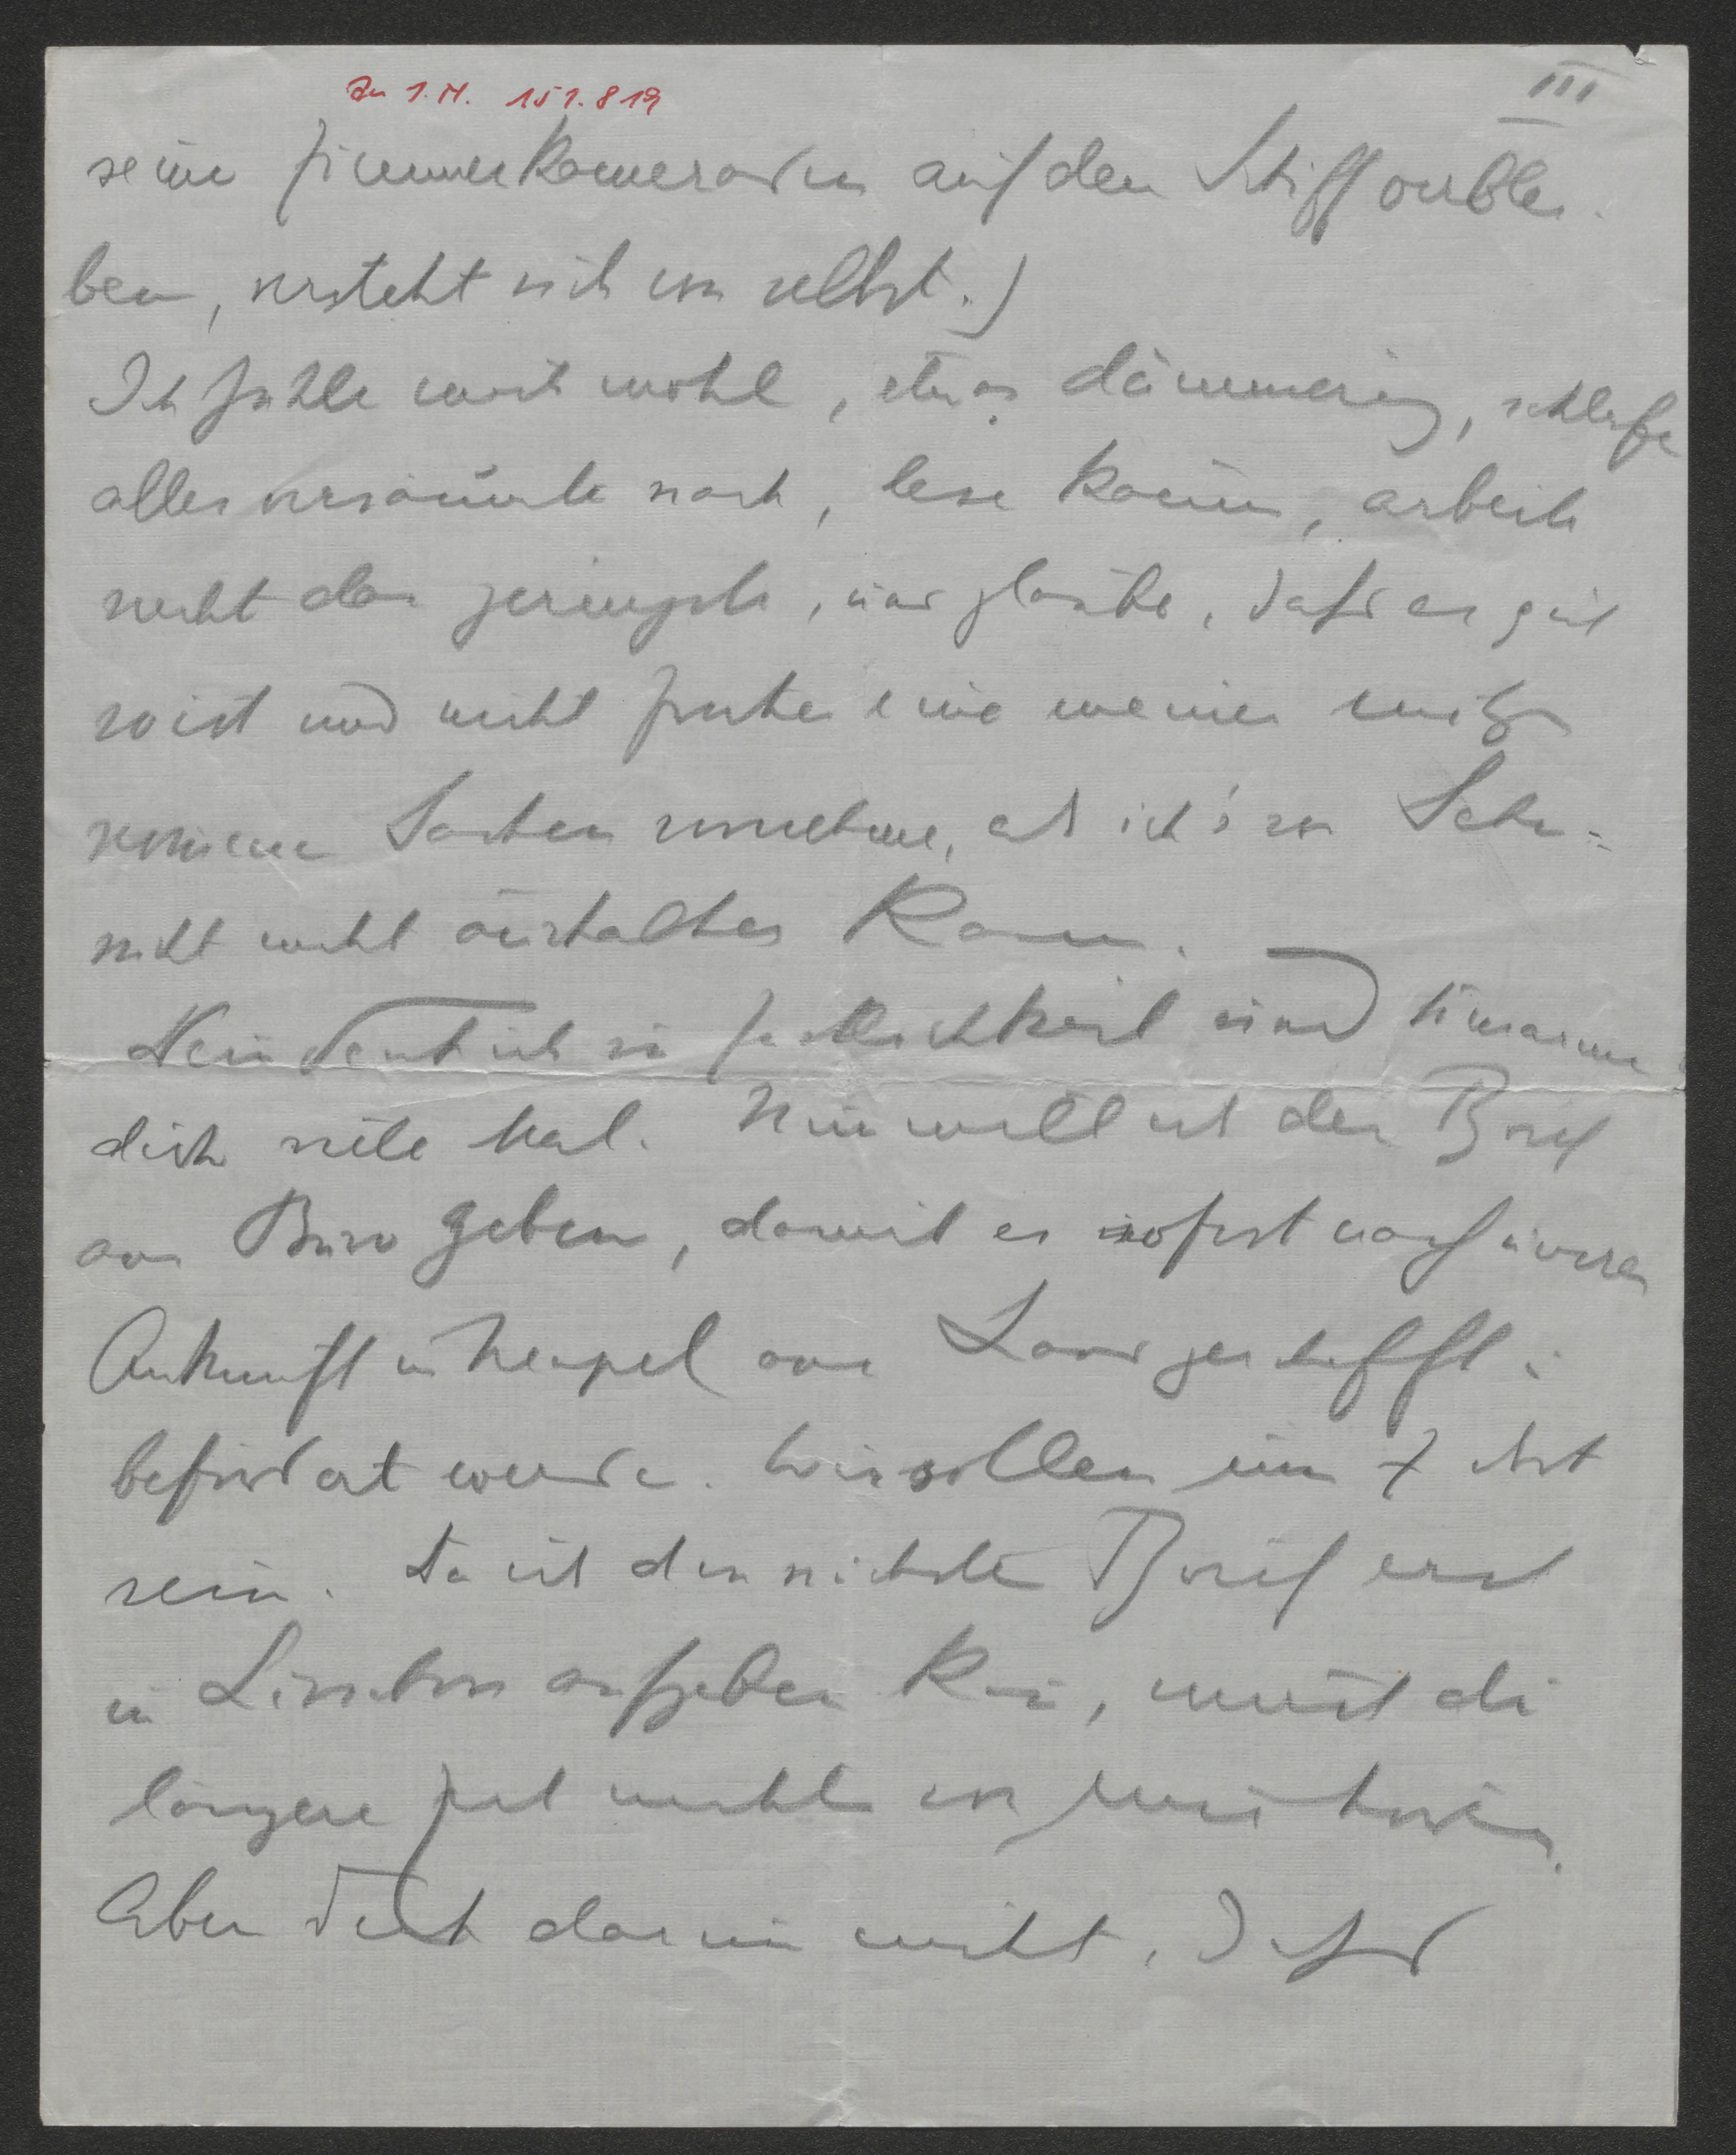 Zu I.N. 151.819
III
seine Zimmerkameraden auf dem Schiff verblei-
ben, versteht sich von selbst.)
Ich fühle mich wohl, etwas dämmerig, schlafe
alles versäumte nach, lese kaum, arbeite
nicht das geringste, und glaube, dass es gut
so ist und nicht
Sachen vornehme, als ich's
nicht mehr aushalten kann.
denk ich in Zärtlichkeit und umarme
dich viele Mal. Nun will ich den Brief
am Büro geben, damit er sofort nach unserer
Ankunft in Neapel ans Land geschafft u
befördert werde. Wir sollen um 7 dort
sein. Da ich den nächsten Brief erst
in Lissabon aufgeben kann, wirst du
längere Zeit nichts von mir hören.
Aber denk darum nicht, dass